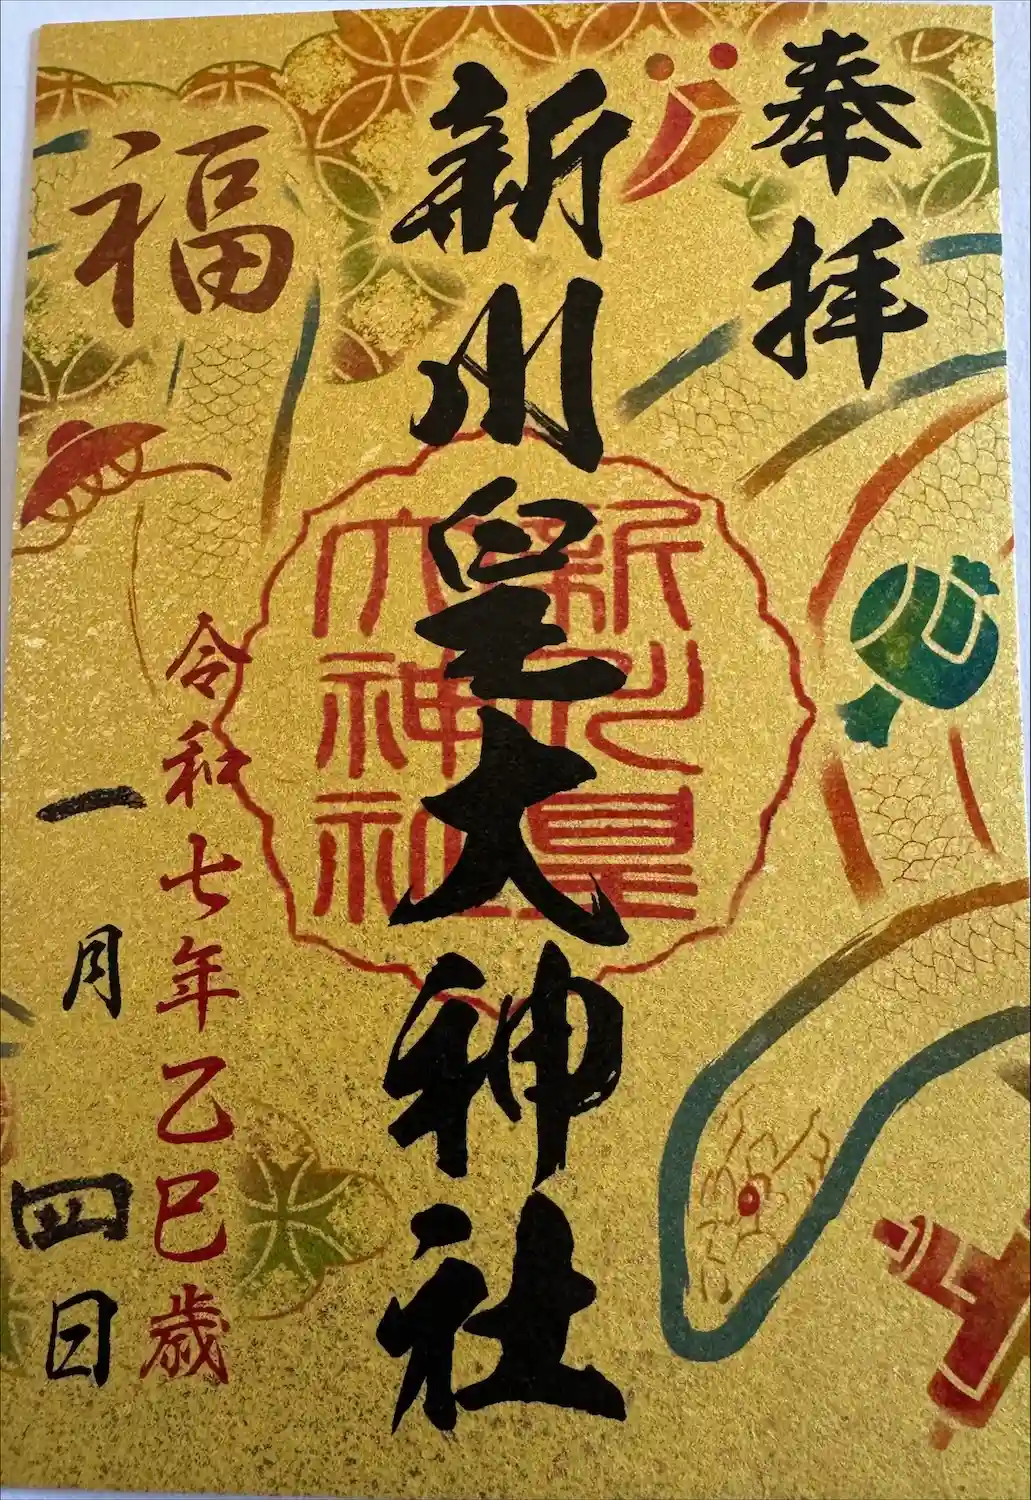 奉拝
新川皇大神社
新川皇
大神社
福
令和七年乙巳歳
一月四日